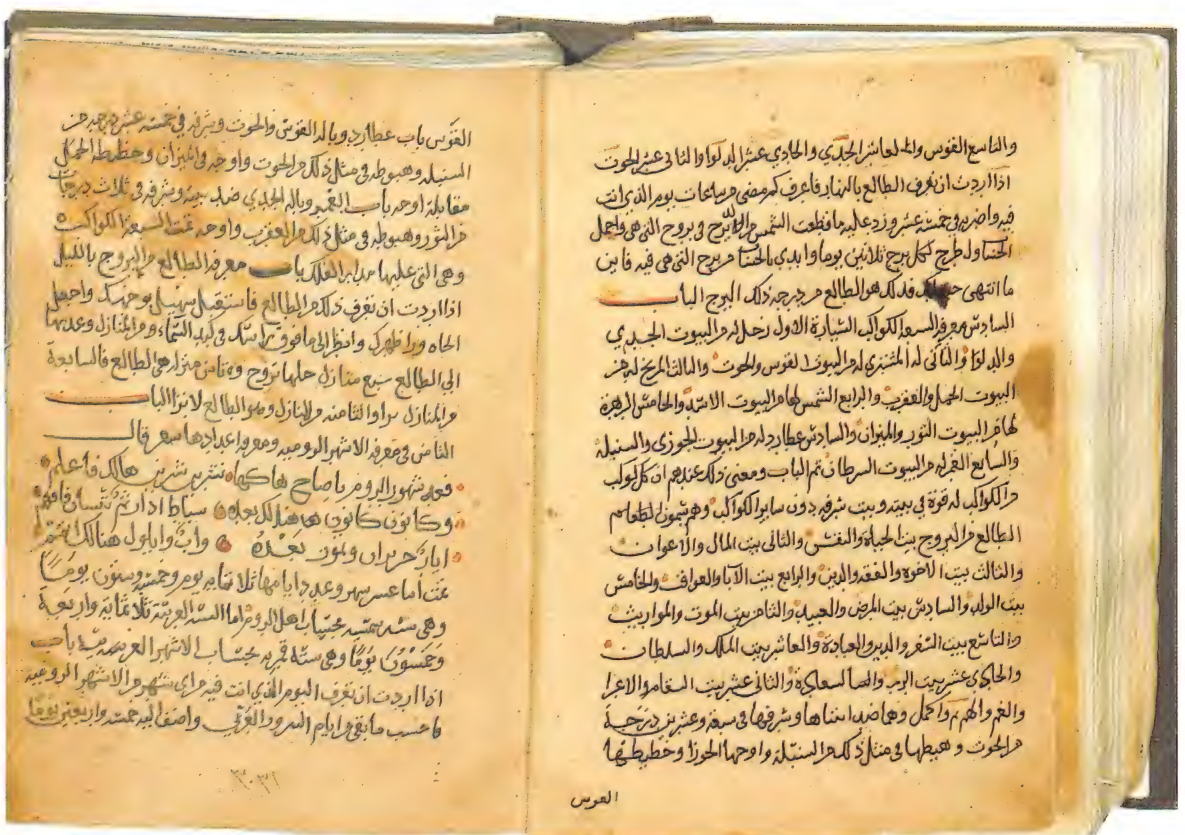 والتاسع القوس والعاشر الجدي والحادي عشر الدلو والثاني عشر الحوت
اذا اردت ان تعرف الطالع بالنهار فاعرف كم مضى من ساعات يوم الذي انت
فيه واضربه في خمسة عشر وزد عليه ما قطعت الشمس من البرج في بروح التي هي واجمل
الحساب ولطرح لكل برج ثلاثين يوما وابدي بالحساب من برج التي هي فيه فاين
ما انتهى فذلك هو الطالع من درجة ذلك البرج الباب
السادس معرفة السبعة الكواكب السيارة الاول زحل له من البيوت الجدي
والدلو والثاني له المشتري له من البيوت القوس والحوت والثالث المريخ له من
البيوت الحمل والعقرب والرابع الشمس لها من البيوت الاسد والخامس الزهرة
لها من البيوت الثور والميزان والسادس عطارد له من البيوت الجوزى والسنبلة
والسابع القمر له من البيوت السرطان تم الباب ومعنى ذلك عندهم ان كل كوكب
من الكواكب له قوة في بيته وبيت شرفه دون ساير الكواكب وهم يسمون الطعاسم
الطالع من البروج بيت الحياة والنفس والثاني بيت المال والاعوان
والثالث بيت الاخوة والفقه والدين والرابع بيت الابا والعواقب والخامس
بيت الولد والسادس بيت المرض والعبيد والثامن بيت الموت والمواريث
والتاسع بيت السفر والدين والعبادة والعاشر بيت الملك والسلطان
والحادي عشر بيت الرجا والسعادة والثاني عشر بيت والاعدا
والغم والهم تم واجمل وها ضد ابتناها وشرفها في سبعة وعشرين درجة
من الحوت وهبطها في مثل ذلك من السنبلة واوجها الجوزا وحطيطها
القوس
القوس باب عطارد وباله القوس والحوت وشرفه في خمسة عشر درجة من
السنبلة وهبوطه في مثل ذلك من الحوت واوجه في الميزان وحطيطه الحمل
مقابلة اوجه باب القمر وباله الجدي ضد بيته وشرفه في ثلاث درجات
من الثور وهبوطه في مثل ذلك من العقرب واوجه تمت السبعة الكواكب
وهي التي عليها مدار الفلك باب معرفة الطالع من البروج بالليل
اذا اردت ان تعرف ذلك من الطالع فاستقبل سهيل بوجهك واجعل
الجاه ورا ظهرك وانظر الى ما فوق راسك في كبد السماء ومن المنازل وعدها
الى الطالع سبع منازل حلها بروج وثامن منزله هي الطالع فالسابعة
من المنازل والثامنة من المنازل وهو الطالع الباب
الثامن في معرفة الاشهر الرومية ومعرفة اعدادها شعر قال
فعد شهور الروم يا صاح هاكها تشرين تشرين هالك فاعلم
وكانون كانون هنالك بعده سباط اذار ثم نيسان فافهم
ايار حزيران وتموز بعده واب وايلول هنالك تتم
تمت اثنا عشر شهر وعدد ايامها ثلاثماية يوم وخمسة وستون يوما
وهي سنة شمسية بحساب اهل الروم واما السنة العربية ثلاثماية واربعة
وخمسون يوما وهي سنة قمرية بحساب الاشهر العربية باب
اذا اردت ان تعرف اليوم الذي انت فيه من اي شهر من الاشهر الرومية
فاحسب ما بقي من ايام واضف اليه خمسة واربعين يوما